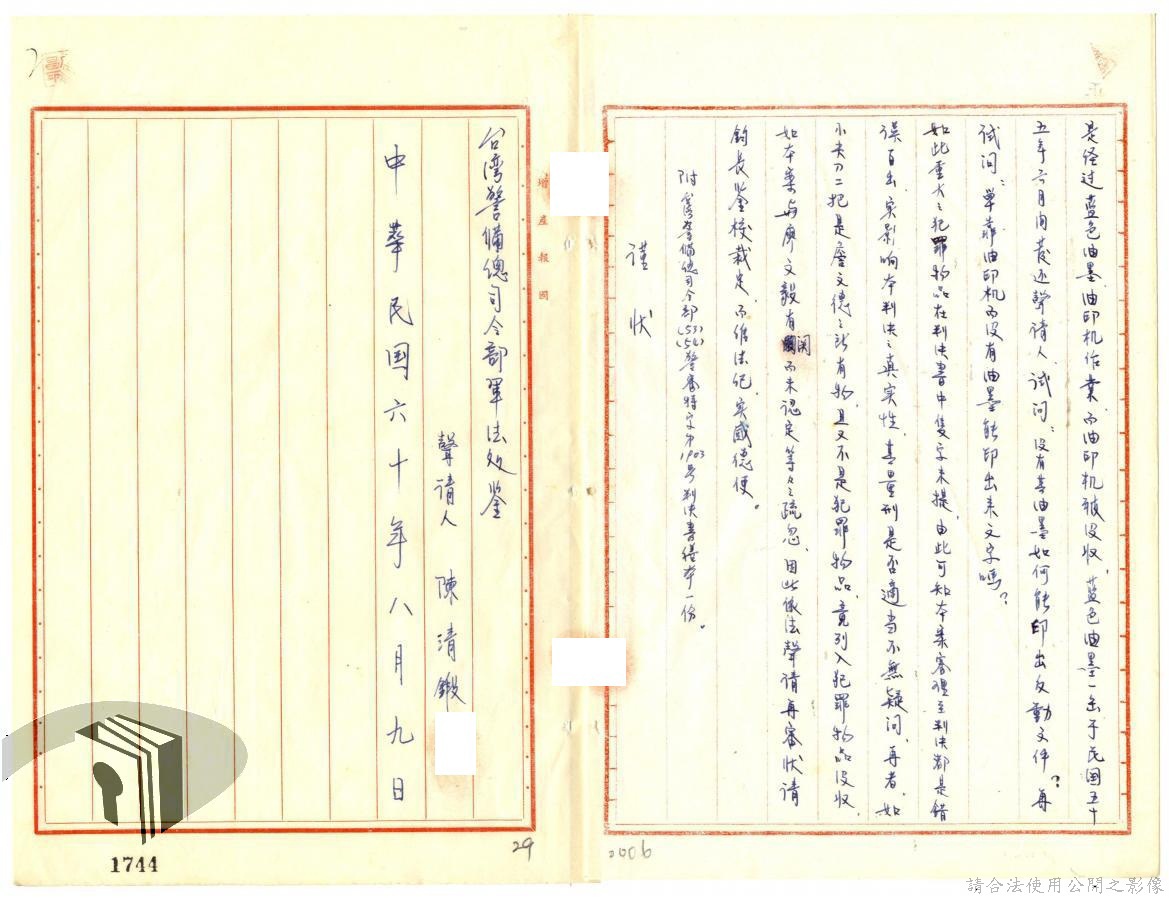 是经过蓝色油墨油印机作業、而油印机被没收、蓝色油墨一缶于民国五十
五年六月间發还聲请人、试问：没有其油墨如何能印出反動文件？再
试问：单靠油印机而没有油墨能印出来文字嗎？
如此重大之犯罪物品在判决書中隻字未提、由此可知本案審理至判决都是錯
误百出、实影响本判决之真实性、其量刑是否適当不無疑问、再者、如
小夹刀二把是詹文德之所有物、且又不是犯罪物品、竟列入犯罪物品没收、
如本案与廖文毅有関而未認定等々之疏忽、因此依法聲请再審状请
鈞长鉴核裁定、而维法纪、实感德便。
附旧警備總司令部(53)(54)警審特字第1903号判决書繕本一份。
谨状
台湾警備總司令部軍法处鉴
聲请人 陳清鍛
中華民国六十年八月九日
增產報國
1744
29
2006
請合法使用公開之影像